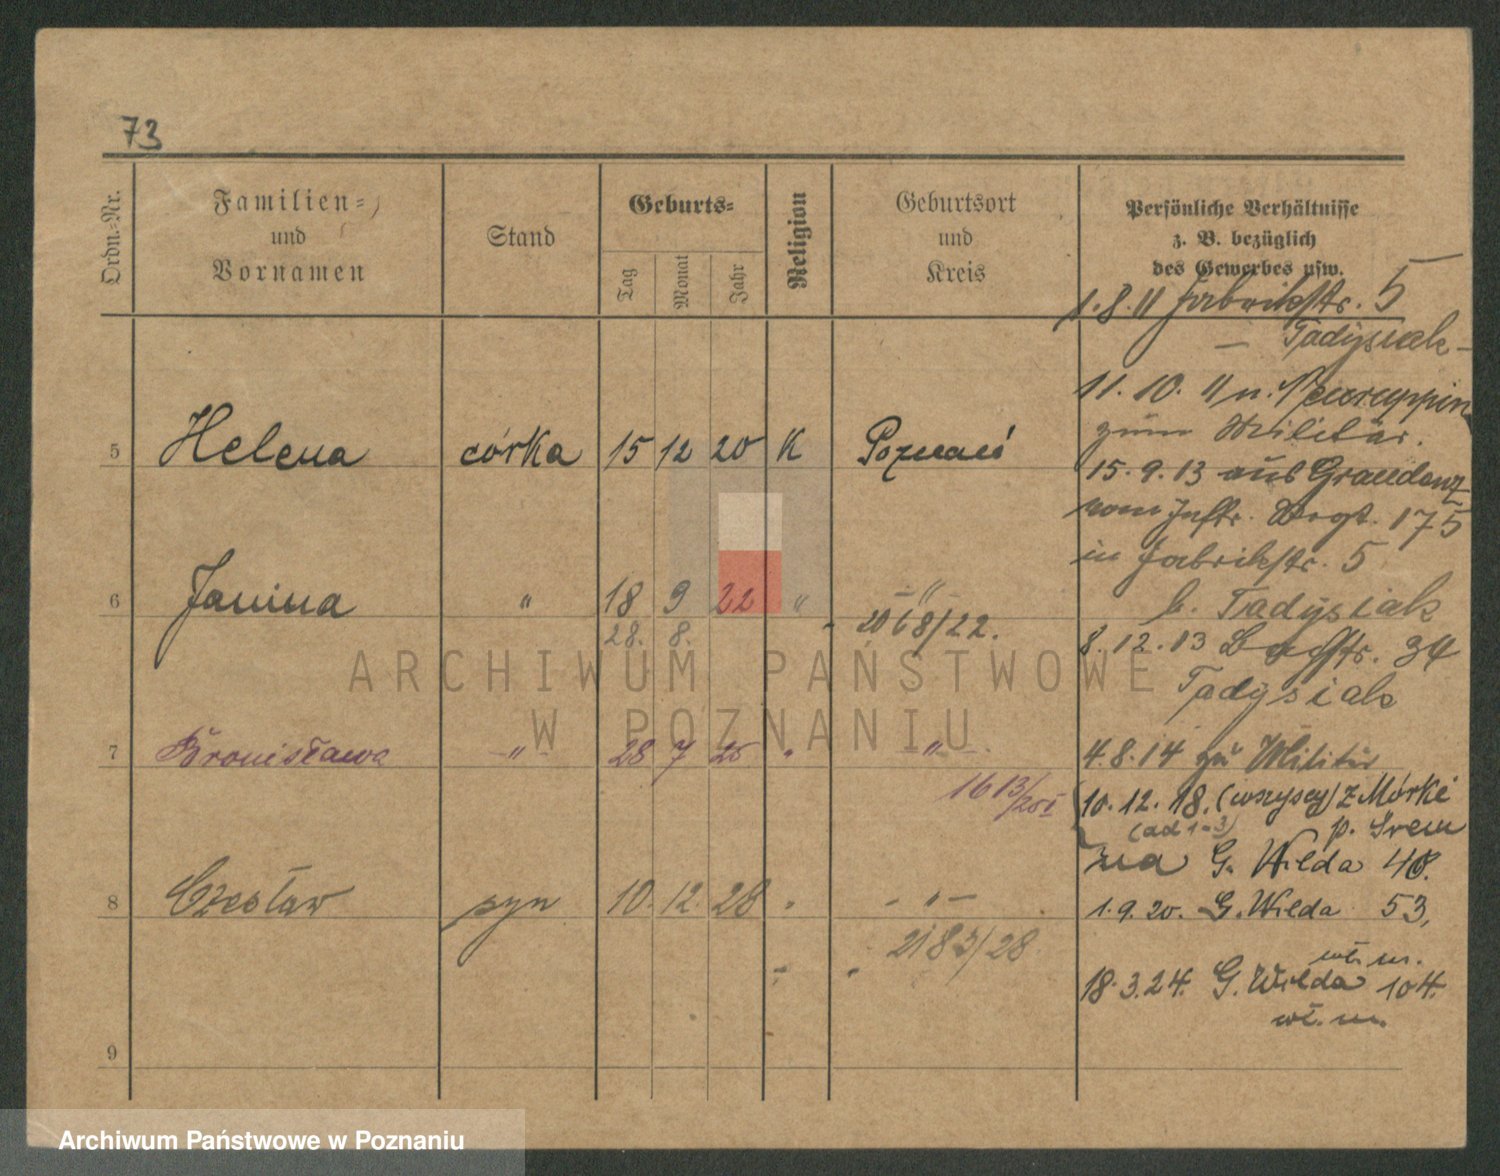 73
Ordn.-Nr.
Familien-
und
Vornamen
Stand
Geburts-
Tag
Monat
Jahr
Religion
Geburtsort
und
Kreis
Persönliche Verhältnisse
z. B. bezüglich
des Gewerbes usw.
1.8.11 Fabrikstr. 5
— Tadysiak —
11.10.11 n. Neuruppin
zum Militär.
5 Helena córka 15 12 20 K Poznań
15.9.13 aus Graudenz
vom Inftr. Regt. 175
in Fabrikstr. 5
6 Janina " 18 9 22 " — " —
b. Tadysiak
28. 8. 2068/22.
8.12.13 Bachstr. 34
Tadysiak
7 Bronisława — " — 28 7 25 " " —
4.8.14 zu Militär
1613/25 I
10.12.18. (wszyscy) z Mórki
(ad 1-3) p. Śrem
na G. Wilda 48.
8 Czesław syn 10. 12. 28 " - " —
1.9.20. G. Wilda 53,
2183/28.
wł. m.
18.3.24. G. Wilda 104.
wł. m.
9
ARCHIWUM PAŃSTWOWE
W POZNANIU
Archiwum Państwowe w Poznaniu